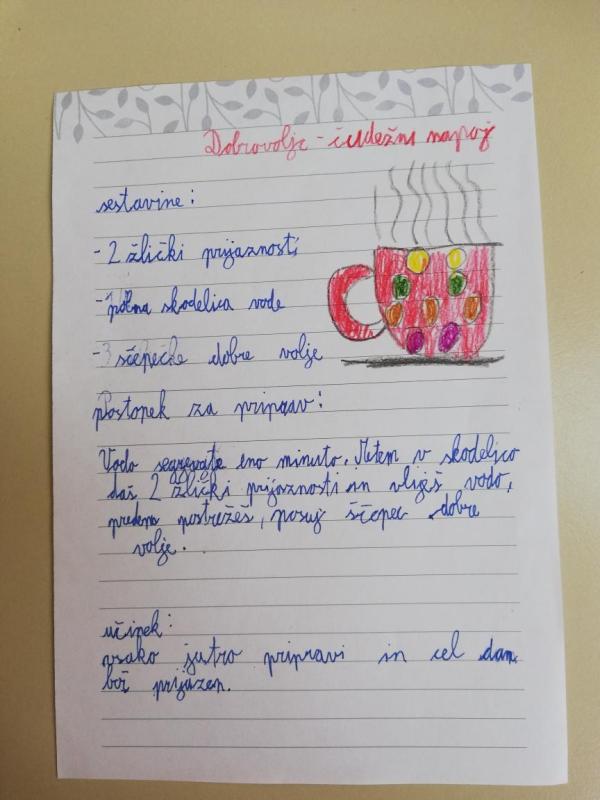 Dobrovolje - čudežni napoj
sestavine:
- 2 žlički prijaznosti
- polna skodelica vode
- 3 ščepečke dobre volje
Postopek za priprav:
Vodo segrevajte eno minuto. Potem v skodelico
daš 2 žlički prijaznosti in vliješ vodo,
preden postrežeš, posuj ščepec dobre
volje.
učinek:
vsako jutro pripravi in cel dan
boš prijazen.